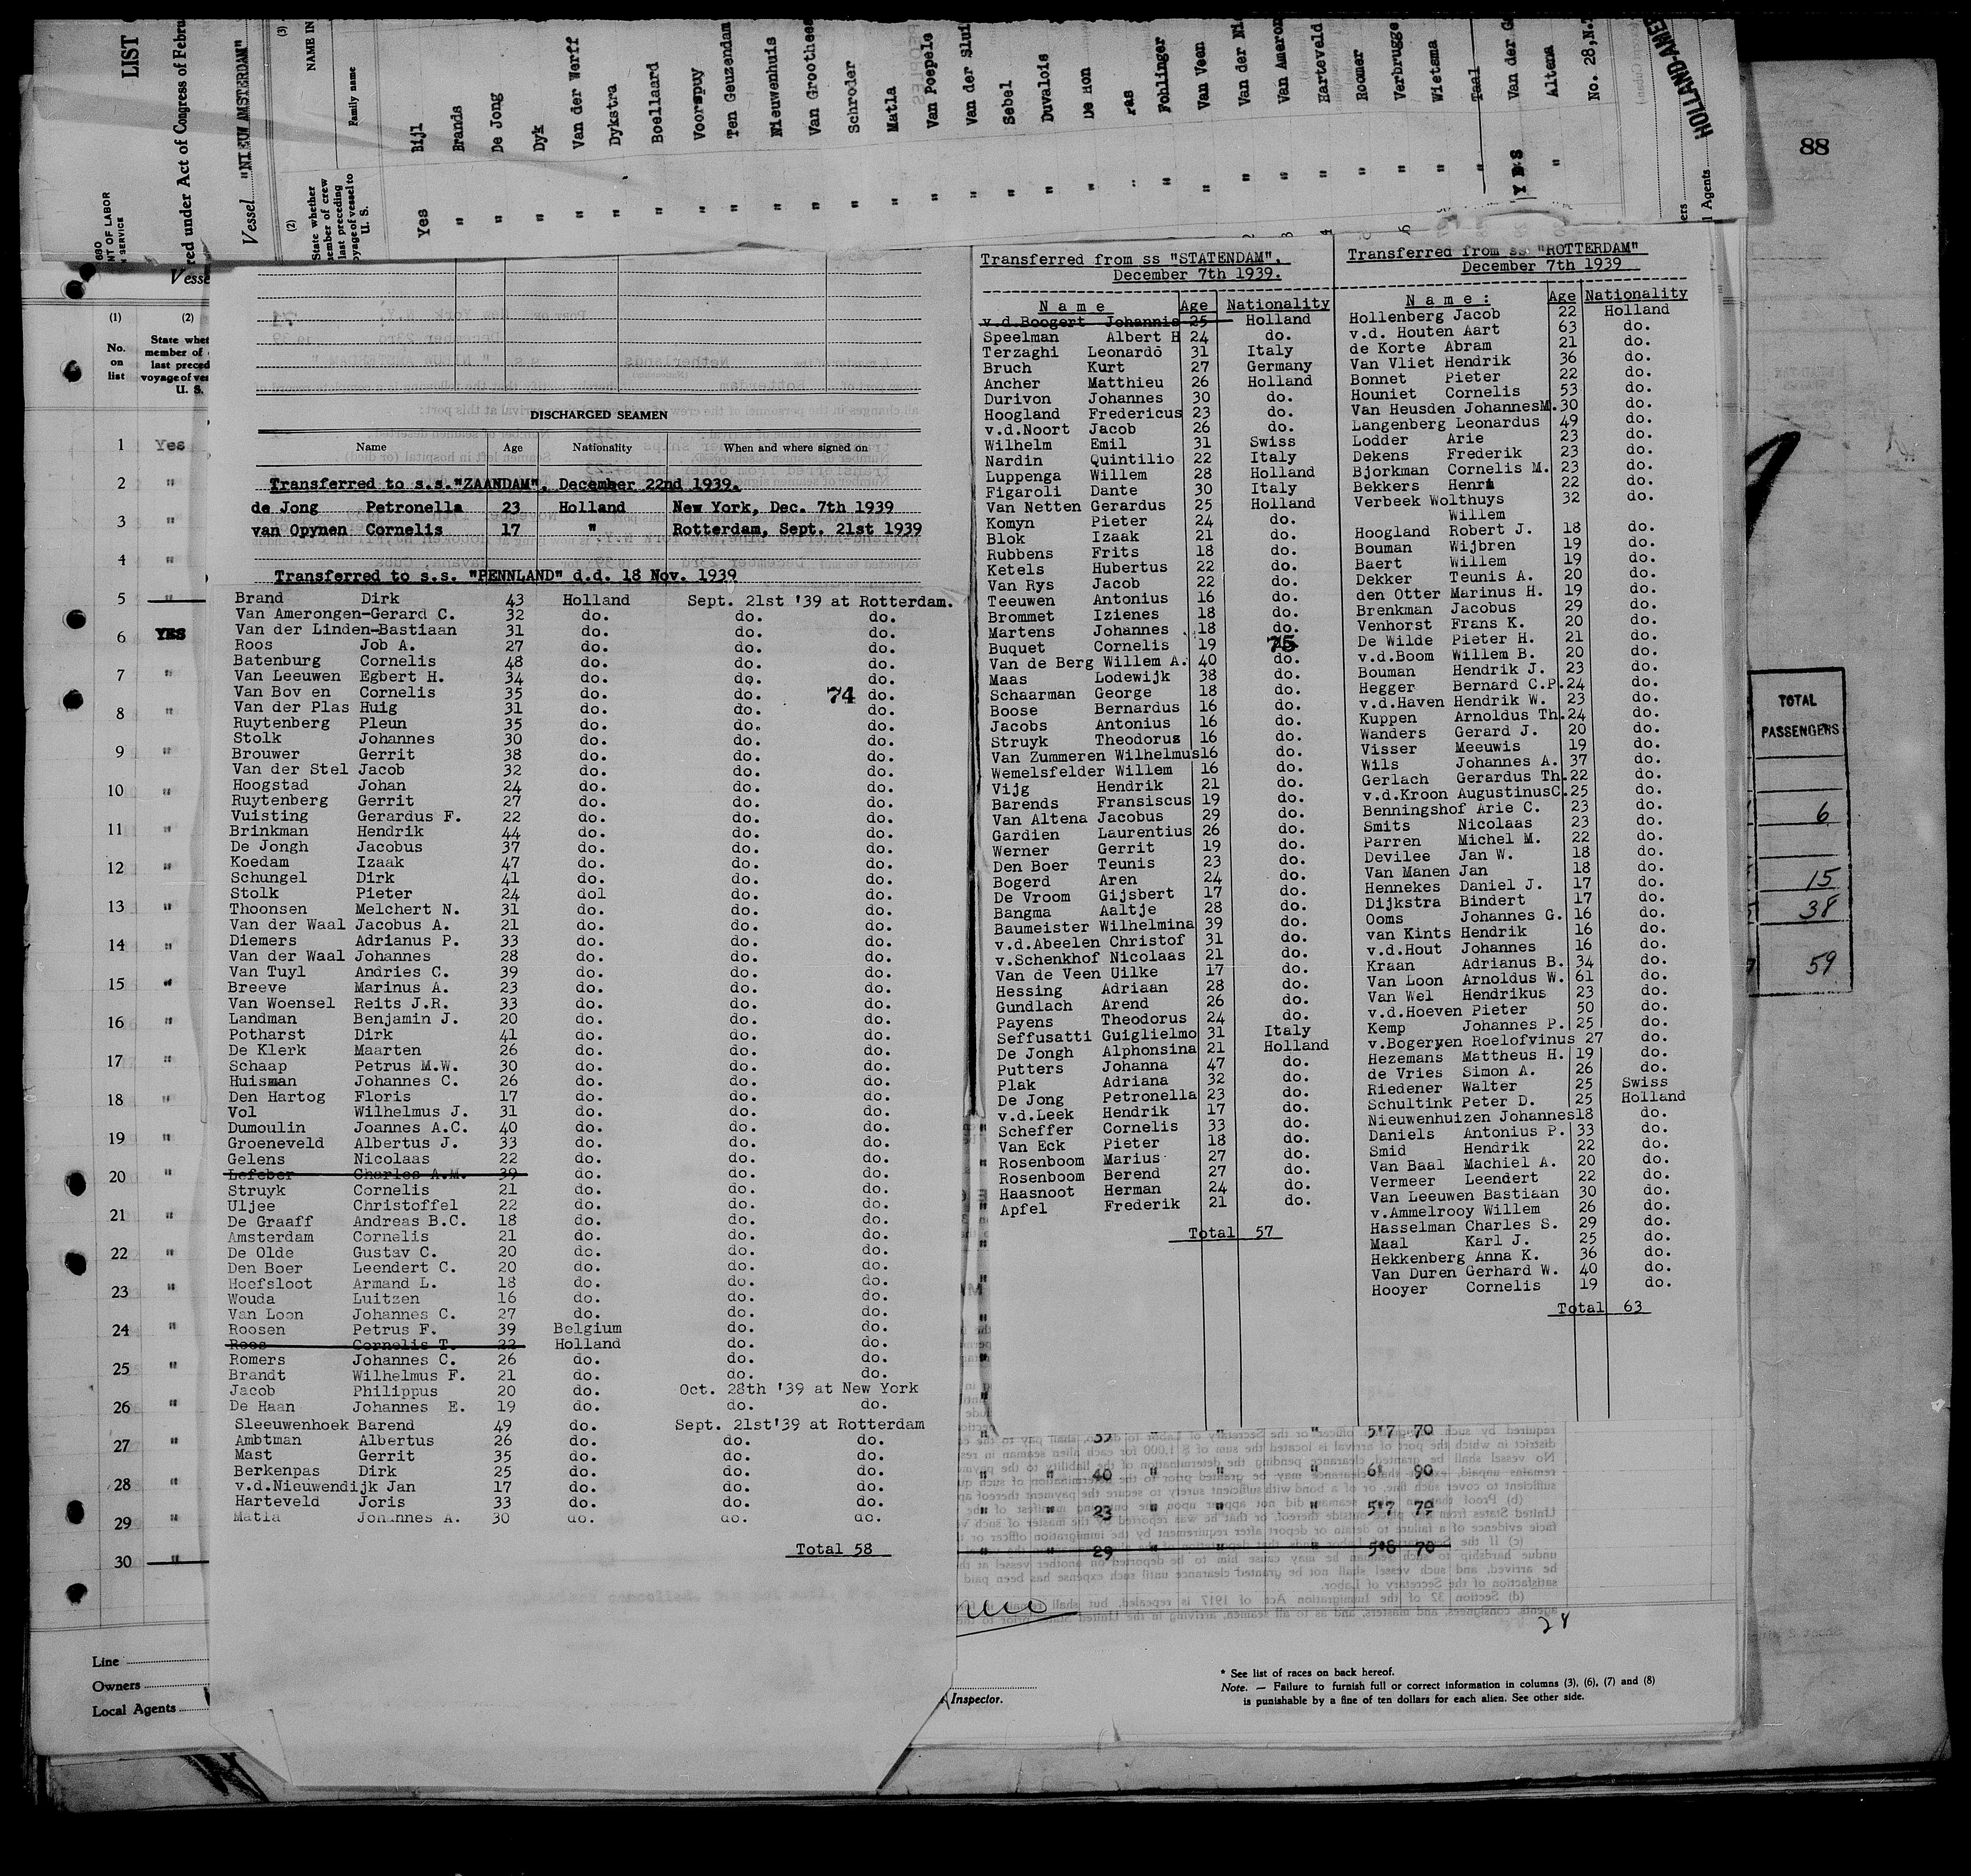 LIST
red under Act of Congress of Febru
Vessel "NIEUW AMSTERDAM"
680
NT OF LABOR
SERVICE
(3)
NAME IN
Family name
(2)
State whether
member of crew
last preceding
voyage of vessel to
U. S.
Yes Bijl
" Brands
" De Jong
" Dyk
" Van der Werff
" Dykstra
" Boellaard
" Voorspuy
" Ten Geuzendam
" Nieuwenhuis
" Van Grootheest
" Schroder
" Matla
" Van Poepele
" Van der Slui
" Sebel
" Duvalois
" De Hon
" ras
" Fohlinger
" Van Veen
" Van der Ni
" Van Ameron
" Harteveld
" Roomer
" Verbrugge
" Wietsma
" Taal
YES Van der G
" Altena
No. 28,N.
HOLLAND-AME
ers
l Agents
88
Vesse
(1) (2)
No. on list
State whet
member of
last preced
voyage of ves
U. S.
1 Yes
2 "
3 "
4 "
5 "
6 YES
7 "
8 "
9 "
10 "
11 "
12 "
13 "
14 "
15 "
16 "
17 "
18 "
19 "
20 "
21 "
22 "
23 "
24 "
25 "
26 "
27 "
28 "
29 "
30 "
Line
Owners
Local Agents
DISCHARGED SEAMEN
Name Age Nationality When and where signed on
Transferred to s.s."ZAANDAM", December 22nd 1939.
de Jong Petronella 23 Holland New York, Dec. 7th 1939
van Opynen Cornelis 17 " Rotterdam, Sept. 21st 1939
Transferred to s.s. "PENNLAND" d.d. 18 Nov. 1939
Brand Dirk 43 Holland Sept. 21st '39 at Rotterdam.
Van Amerongen-Gerard C. 32 do. do. do.
Van der Linden-Bastiaan 31 do. do. do.
Roos Job A. 27 do. do. do.
Batenburg Cornelis 48 do. do. do.
Van Leeuwen Egbert H. 34 do. do. do.
Van Bov en Cornelis 35 do. do. 74 do.
Van der Plas Huig 31 do. do. do.
Ruytenberg Pleun 35 do. do. do.
Stolk Johannes 30 do. do. do.
Brouwer Gerrit 38 do. do. do.
Van der Stel Jacob 32 do. do. do.
Hoogstad Johan 24 do. do. do.
Ruytenberg Gerrit 27 do. do. do.
Vuisting Gerardus F. 22 do. do. do.
Brinkman Hendrik 44 do. do. do.
De Jongh Jacobus 37 do. do. do.
Koedam Izaak 47 do. do. do.
Schungel Dirk 41 do. do. do.
Stolk Pieter 24 dol do. do.
Thoonsen Melchert N. 31 do. do. do.
Van der Waal Jacobus A. 21 do. do. do.
Diemers Adrianus P. 33 do. do. do.
Van der Waal Johannes 28 do. do. do.
Van Tuyl Andries C. 39 do. do. do.
Breeve Marinus A. 23 do. do. do.
Van Woensel Reits J.R. 33 do. do. do.
Landman Benjamin J. 20 do. do. do.
Potharst Dirk 41 do. do. do.
De Klerk Maarten 26 do. do. do.
Schaap Petrus M.W. 30 do. do. do.
Huisman Johannes C. 26 do. do. do.
Den Hartog Floris 17 do. do. do.
Vol Wilhelmus J. 31 do. do. do.
Dumoulin Joannes A.C. 40 do. do. do.
Groeneveld Albertus J. 33 do. do. do.
Gelens Nicolaas 22 do. do. do.
Lefeber Charles A.M. 39 do. do. do.
Struyk Cornelis 21 do. do. do.
Uljee Christoffel 22 do. do. do.
De Graaff Andreas B.C. 18 do. do. do.
Amsterdam Cornelis 21 do. do. do.
De Olde Gustav C. 20 do. do. do.
Den Boer Leendert C. 20 do. do. do.
Hoefsloot Armand L. 18 do. do. do.
Wouda Luitzen 16 do. do. do.
Van Loon Johannes C. 27 do. do. do.
Roosen Petrus F. 39 Belgium do. do.
Roos Cornelis T. 22 Holland do. do.
Romers Johannes C. 26 do. do. do.
Brandt Wilhelmus F. 21 do. do. do.
Jacob Philippus 20 do. Oct. 28th '39 at New York
De Haan Johannes E. 19 do. do. do.
Sleeuwenhoek Barend 49 do. Sept. 21st'39 at Rotterdam
Ambtman Albertus 26 do. do. do.
Mast Gerrit 35 do. do. do.
Berkenpas Dirk 25 do. do. do.
v.d.Nieuwendijk Jan 17 do. do. do.
Harteveld Joris 33 do. do. do.
Matla Johannes A. 30 do. do. do.
Total 58
Transferred from ss "STATENDAM".
December 7th 1939.
Name Age Nationality
v.d.Boogert Johannis 25 Holland
Speelman Albert H 24 do.
Terzaghi Leonardo 31 Italy
Bruch Kurt 27 Germany
Ancher Matthieu 26 Holland
Durivon Johannes 30 do.
Hoogland Fredericus 23 do.
v.d.Noort Jacob 26 do.
Wilhelm Emil 31 Swiss
Nardin Quintilio 22 Italy
Luppenga Willem 28 Holland
Figaroli Dante 30 Italy
Van Netten Gerardus 25 Holland
Komyn Pieter 24 do.
Blok Izaak 21 do.
Rubbens Frits 18 do.
Ketels Hubertus 22 do.
Van Rys Jacob 22 do.
Teeuwen Antonius 16 do.
Brommet Izienes 18 do.
Martens Johannes 18 do.
Buquet Cornelis 19 75
Van de Berg Willem A. 40 do.
Maas Lodewijk 38 do.
Schaarman George 18 do.
Boose Bernardus 16 do.
Jacobs Antonius 16 do.
Struyk Theodorus 16 do.
Van Zummeren Wilhelmus16 do.
Wemelsfelder Willem 16 do.
Vijg Hendrik 21 do.
Barends Fransiscus 19 do.
Van Altena Jacobus 29 do.
Gardien Laurentius 26 do.
Werner Gerrit 19 do.
Den Boer Teunis 23 do.
Bogerd Aren 24 do.
De Vroom Gijsbert 17 do.
Bangma Aaltje 28 do.
Baumeister Wilhelmina 39 do.
v.d.Abeelen Christof 31 do.
v.Schenkhof Nicolaas 21 do.
Van de Veen Uilke 17 do.
Hessing Adriaan 28 do.
Gundlach Arend 26 do.
Payens Theodorus 24 do.
Seffusatti Guiglielmo 31 Italy
De Jongh Alphonsina 21 Holland
Putters Johanna 47 do.
Plak Adriana 32 do.
De Jong Petronella 23 do.
v.d.Leek Hendrik 17 do.
Scheffer Cornelis 33 do.
Van Eck Pieter 18 do.
Rosenboom Marius 27 do.
Rosenboom Berend 27 do.
Haasnoot Herman 24 do.
Apfel Frederik 21 do.
Total 57
Transferred from ss "ROTTERDAM"
December 7th 1939
Name: Age Nationality
Hollenberg Jacob 22 Holland
v.d. Houten Aart 63 do.
de Korte Abram 21 do.
Van Vliet Hendrik 36 do.
Bonnet Pieter 22 do.
Houniet Cornelis 53 do.
Van Heusden JohannesM. 30 do.
Langenberg Leonardus 49 do.
Lodder Arie 23 do.
Dekens Frederik 23 do.
Bjorkman Cornelis M. 23 do.
Bekkers Henri 22 do.
Verbeek Wolthuys 32 do.
Willem
Hoogland Robert J. 18 do.
Bouman Wijbren 19 do.
Baert Willem 19 do.
Dekker Teunis A. 20 do.
den Otter Marinus H. 19 do.
Brenkman Jacobus 29 do.
Venhorst Frans K. 20 do.
De Wilde Pieter H. 21 do.
v.d.Boom Willem B. 20 do.
Bouman Hendrik J. 23 do.
Hegger Bernard C.P.24 do.
v.d.Haven Hendrik W. 23 do.
Kuppen Arnoldus Th.24 do.
Wanders Gerard J. 20 do.
Visser Meeuwis 19 do.
Wils Johannes A. 37 do.
Gerlach Gerardus Th.22 do.
v.d.Kroon AugustinusC.25 do.
Benningshof Arie C. 23 do.
Smits Nicolaas 23 do.
Parren Michel M. 22 do.
Devilee Jan W. 18 do.
Van Manen Jan 18 do.
Hennekes Daniel J. 17 do.
Dijkstra Bindert 17 do.
Ooms Johannes G. 16 do.
van Kints Hendrik 16 do.
v.d.Hout Johannes 16 do.
Kraan Adrianus B. 34 do.
Van Loon Arnoldus W. 61 do.
Van Wel Hendrikus 23 do.
v.d.Hoeven Pieter 50 do.
Kemp Johannes P. 25 do.
v.Bogeryen Roelofvinus 27 do.
Hezemans Mattheus H. 19 do.
de Vries Simon A. 26 do.
Riedener Walter 25 Swiss
Schultink Peter D. 25 Holland
Nieuwenhuizen Johannes18 do.
Daniels Antonius P. 33 do.
Smid Hendrik 22 do.
Van Baal Machiel A. 20 do.
Vermeer Leendert 22 do.
Van Leeuwen Bastiaan 30 do.
v.Ammelrooy Willem 26 do.
Hasselman Charles S. 29 do.
Maal Karl J. 25 do.
Hekkenberg Anna K. 36 do.
Van Duren Gerhard W. 40 do.
Hooyer Cornelis 19 do.
Total 63
" 39 " " " 5'7 70
" " 40 " " " 6' 90
" " 23 " " " 5'7 70
" 29 " " " 5'8 70
24
Inspector.
* See list of races on back hereof.
Note. — Failure to furnish full or correct information in columns (3), (6), (7) and (8)
is punishable by a fine of ten dollars for each alien. See other side.
TOTAL
PASSENGERS
6
15
38
59